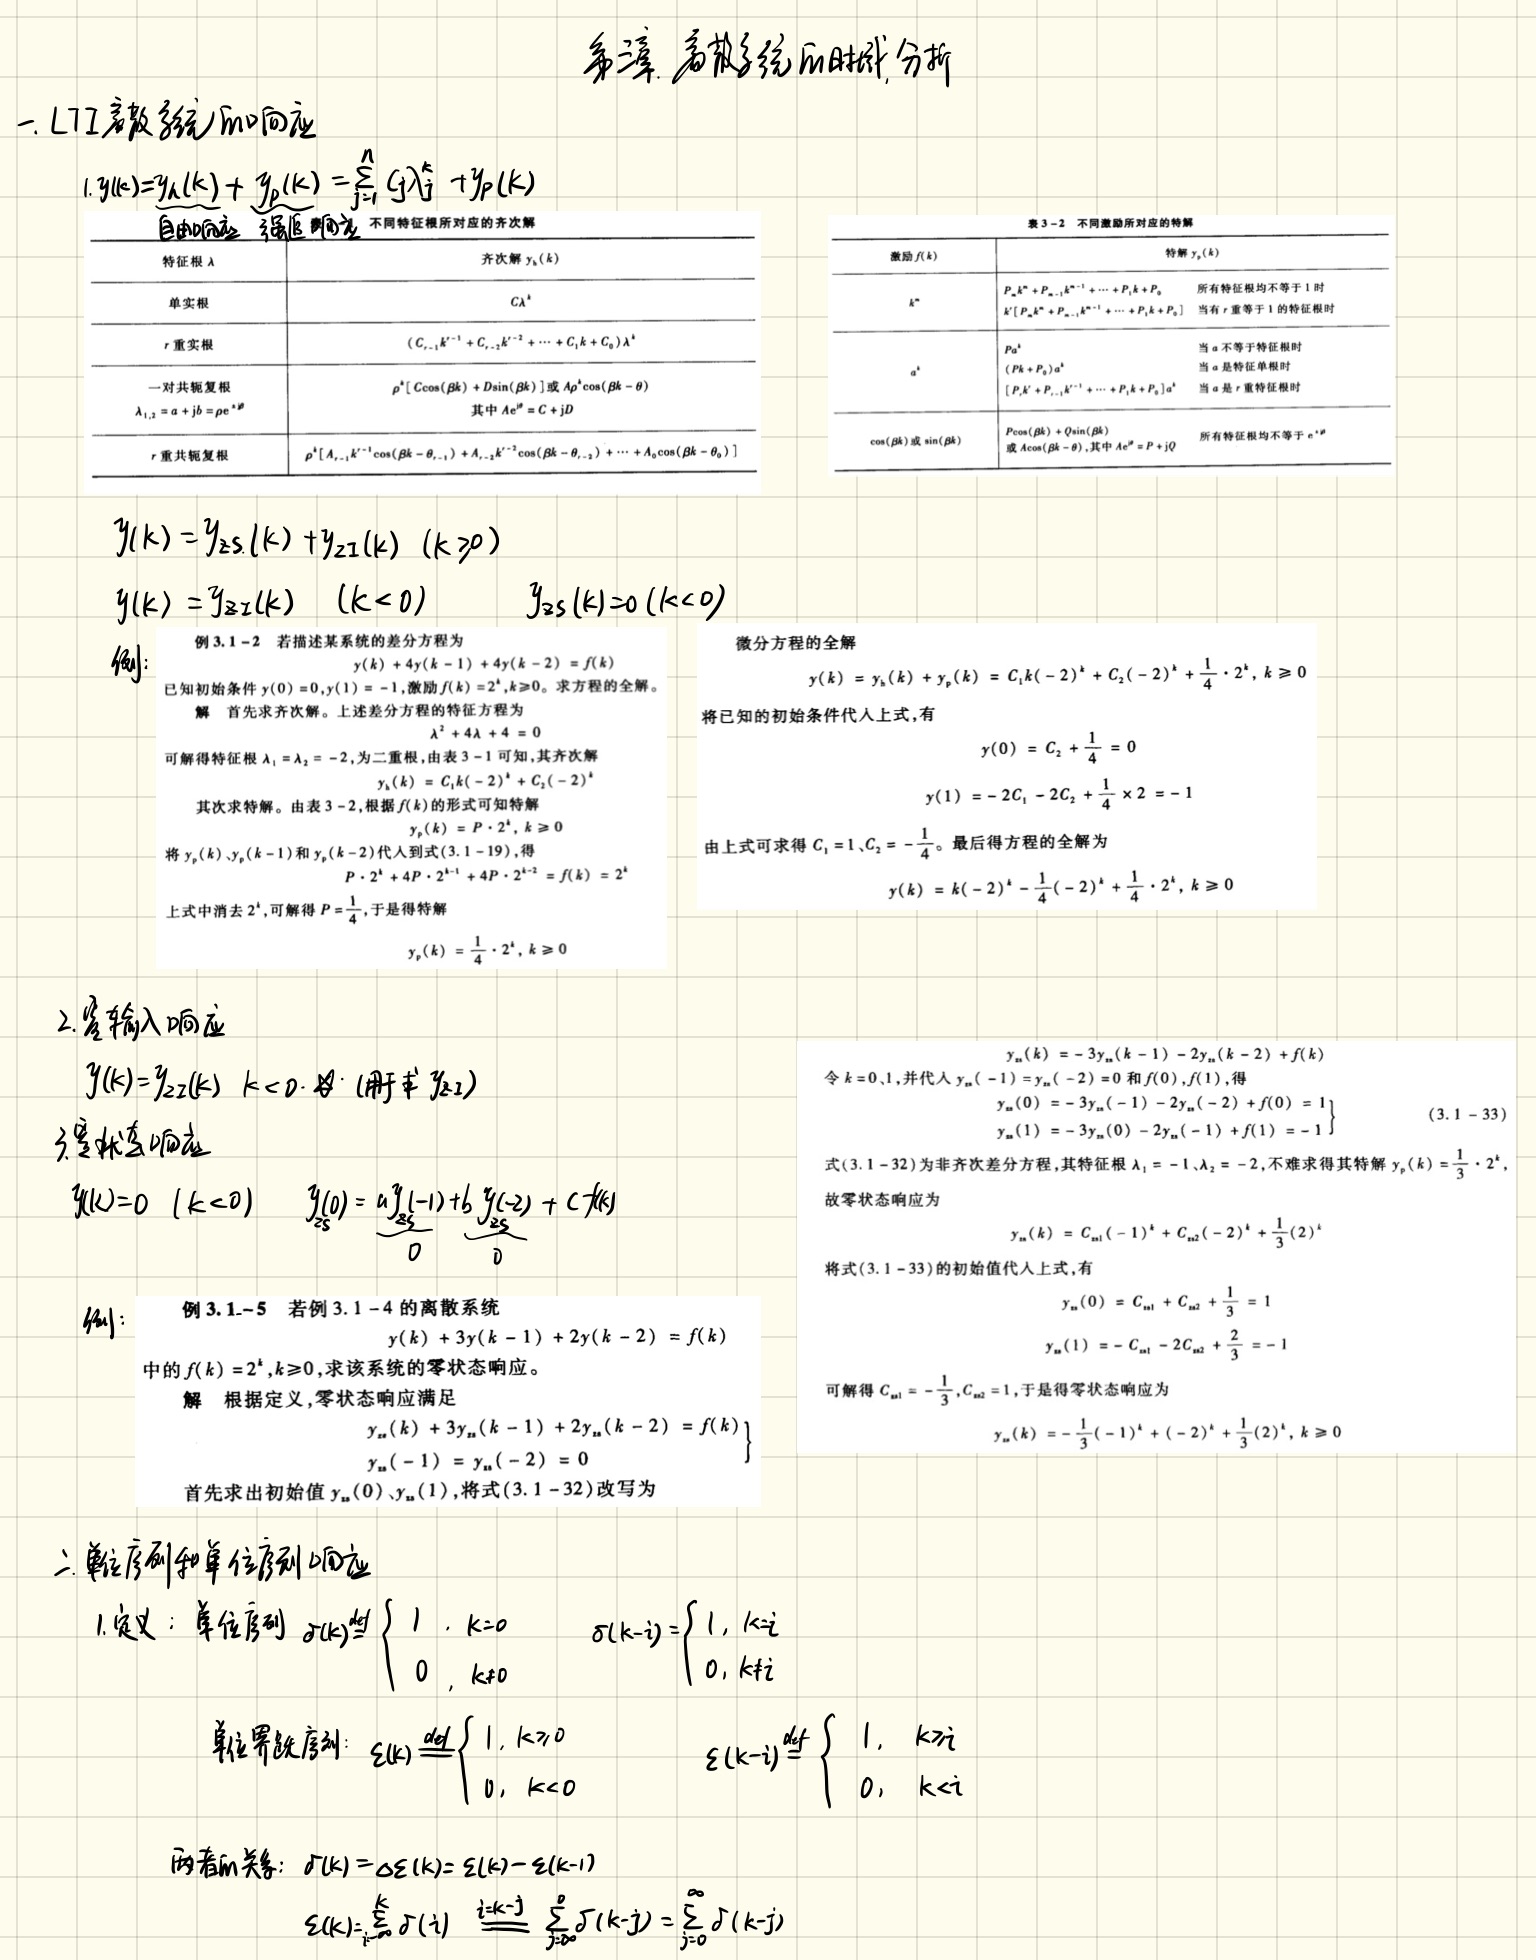 第三章. 离散系统的时域分析
一. LTI离散系统的响应
1. y(k)=y_h(k)+y_p(k)=∑_{j=1}^{n} C_jλ_j^k+y_p(k)
自由响应 强迫响应 不同特征根所对应的齐次解
特征根 λ 齐次解 y_h(k)
单实根 Cλ^k
r 重实根 (C_{r-1}k^{r-1}+C_{r-2}k^{r-2}+⋯+C_1k+C_0)λ^k
一对共轭复根 ρ^k[Ccos(βk)+Dsin(βk)]或 Aρ^kcos(βk-θ)
λ_{1,2}=a+jb=ρe^{±jβ} 其中 Ae^{jθ}=C+jD
r 重共轭复根 ρ^k[A_{r-1}k^{r-1}cos(βk-θ_{r-1})+A_{r-2}k^{r-2}cos(βk-θ_{r-2})+⋯+A_0cos(βk-θ_0)]
表 3-2 不同激励所对应的特解
激励 f(k) 特解 y_p(k)
k^m P_mk^m+P_{m-1}k^{m-1}+⋯+P_1k+P_0 所有特征根均不等于 1 时
k^r[P_mk^m+P_{m-1}k^{m-1}+⋯+P_1k+P_0] 当有 r 重等于 1 的特征根时
a^k Pa^k 当 a 不等于特征根时
(Pk+P_0)a^k 当 a 是特征单根时
[P_rk^r+P_{r-1}k^{r-1}+⋯+P_1k+P_0]a^k 当 a 是 r 重特征根时
cos(βk)或 sin(βk) Pcos(βk)+Qsin(βk) 所有特征根均不等于 e^{±jβ}
或 Acos(βk-θ),其中 Ae^{jθ}=P+jQ
y(k)=y_{zs}(k)+y_{zI}(k) (k≥0)
y(k)=y_{zI}(k) (k<0) y_{zs}(k)=0 (k<0)
例:
例 3.1-2 若描述某系统的差分方程为
y(k)+4y(k-1)+4y(k-2)=f(k)
已知初始条件 y(0)=0,y(1)=-1,激励 f(k)=2^k,k≥0。求方程的全解。
解 首先求齐次解。上述差分方程的特征方程为
λ^2+4λ+4=0
可解得特征根 λ_1=λ_2=-2,为二重根,由表 3-1 可知,其齐次解
y_h(k)=C_1k(-2)^k+C_2(-2)^k
其次求特解。由表 3-2,根据 f(k)的形式可知特解
y_p(k)=P·2^k, k≥0
将 y_p(k)、y_p(k-1)和 y_p(k-2)代入到式(3.1-19),得
P·2^k+4P·2^{k-1}+4P·2^{k-2}=f(k)=2^k
上式中消去 2^k,可解得 P=1/4,于是得特解
y_p(k)=1/4·2^k, k≥0
微分方程的全解
y(k)=y_h(k)+y_p(k)=C_1k(-2)^k+C_2(-2)^k+1/4·2^k, k≥0
将已知的初始条件代入上式,有
y(0)=C_2+1/4=0
y(1)=-2C_1-2C_2+1/4×2=-1
由上式可求得 C_1=1、C_2=-1/4。最后得方程的全解为
y(k)=k(-2)^k-1/4(-2)^k+1/4·2^k, k≥0
2. 零输入响应
y(k)=y_{zI}(k) k<0. (用于求 y_{zI})
3. 零状态响应
y(k)=0 (k<0) y_{zs}(0)=a y_{zs}(-1)+b y_{zs}(-2)+c f(k)
0 0
例:
例 3.1-5 若例 3.1-4 的离散系统
y(k)+3y(k-1)+2y(k-2)=f(k)
中的 f(k)=2^k,k≥0,求该系统的零状态响应。
解 根据定义,零状态响应满足
y_{zs}(k)+3y_{zs}(k-1)+2y_{zs}(k-2)=f(k)
y_{zs}(-1)=y_{zs}(-2)=0 }
首先求出初始值 y_{zs}(0)、y_{zs}(1),将式(3.1-32)改写为
y_{zs}(k)=-3y_{zs}(k-1)-2y_{zs}(k-2)+f(k)
令 k=0、1,并代入 y_{zs}(-1)=y_{zs}(-2)=0 和 f(0)、f(1),得
y_{zs}(0)=-3y_{zs}(-1)-2y_{zs}(-2)+f(0)=1
y_{zs}(1)=-3y_{zs}(0)-2y_{zs}(-1)+f(1)=-1 } (3.1-33)
式(3.1-32)为非齐次差分方程,其特征根 λ_1=-1、λ_2=-2,不难求得其特解 y_p(k)=1/3·2^k,
故零状态响应为
y_{zs}(k)=C_{zs1}(-1)^k+C_{zs2}(-2)^k+1/3(2)^k
将式(3.1-33)的初始值代入上式,有
y_{zs}(0)=C_{zs1}+C_{zs2}+1/3=1
y_{zs}(1)=-C_{zs1}-2C_{zs2}+2/3=-1
可解得 C_{zs1}=-1/3,C_{zs2}=1,于是得零状态响应为
y_{zs}(k)=-1/3(-1)^k+(-2)^k+1/3(2)^k, k≥0
二. 单位序列和单位序列响应
1. 定义: 单位序列 δ(k) def= { 1, k=0 δ(k-i)= { 1, k=i
0, k≠0 0, k≠i
单位阶跃序列: ε(k) def= { 1, k≥0 ε(k-i) def= { 1, k≥i
0, k<0 0, k<i
两者的关系: δ(k)=Δε(k)=ε(k)-ε(k-1)
ε(k)=∑_{i=-∞}^{k} δ(i) i=k-j= ∑_{j=∞}^{0} δ(k-j)=∑_{j=0}^{∞} δ(k-j)